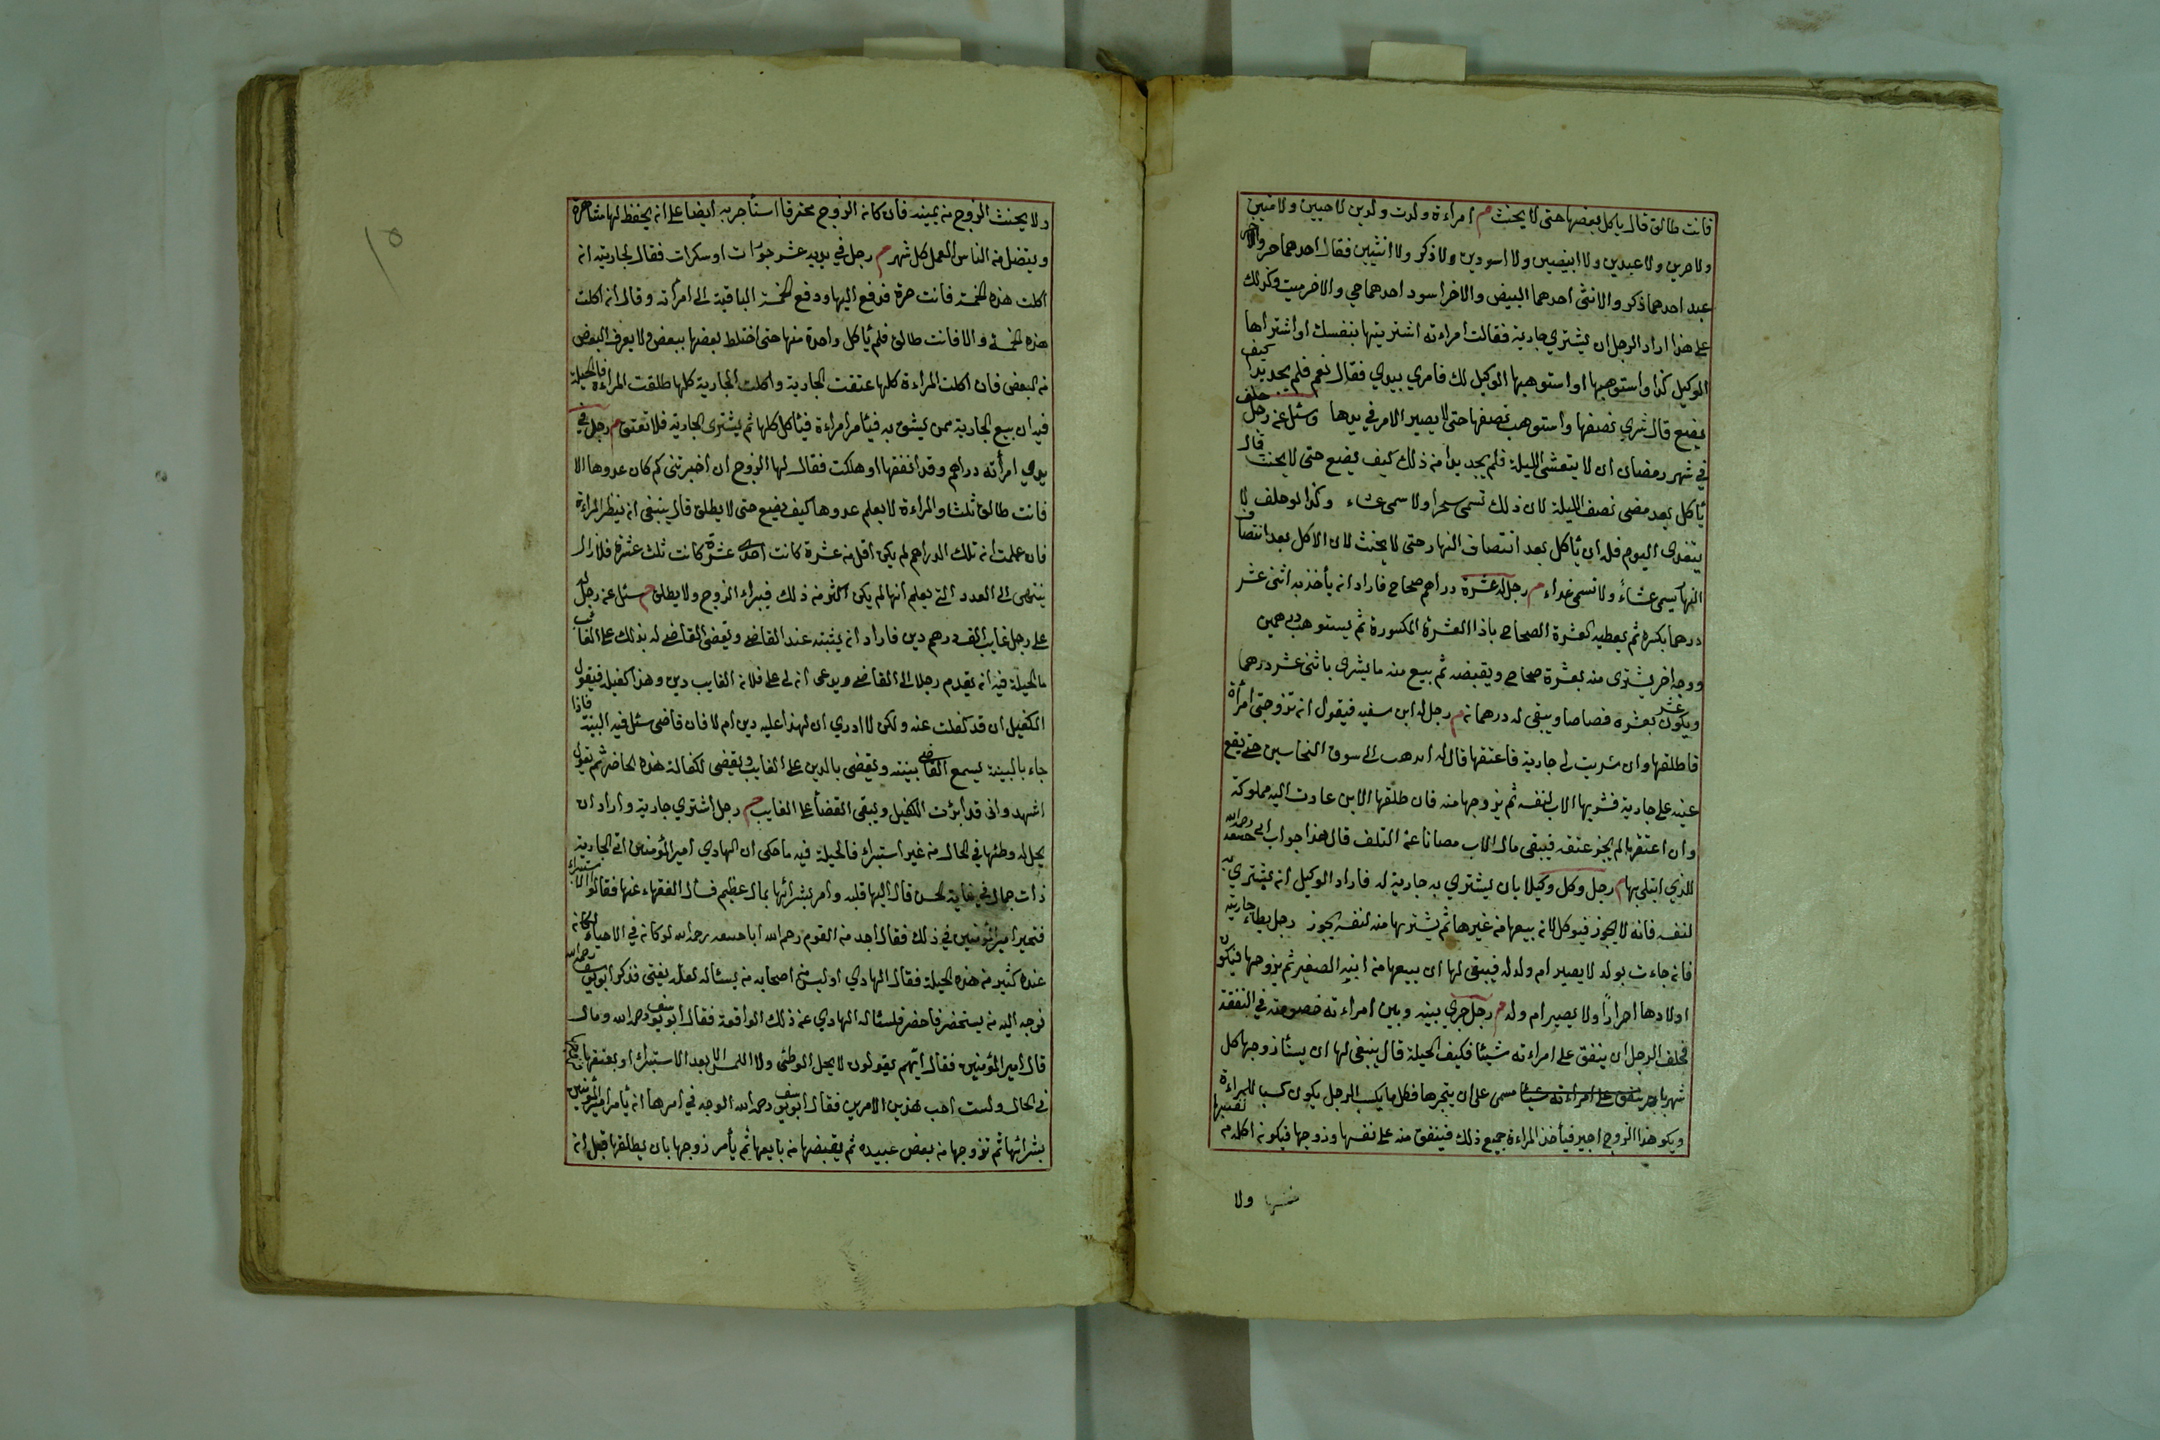 فانت طالق قال ياكل بعضها حتى لا يحنث م امراءة ولدت ولدين لا حيين ولا ميتين
ولا حرين ولا عبدين ولا ابيضين ولا اسودين ولا ذكر ولا انثيين فقال احدهما حر والاخر
عبد احدهما ذكر والانثى احدهما ابيض والاخر اسود احدهما حي والاخر ميت وكذلك
على هذا اراد الرجل ان يشتري جارية فقالت امراءته اشتريتها بنفسك او اشتراها
الوكيل كذا واستوهبها او استوهبها الوكيل لك فامري بيدي فقال نعم فلم يجد بدا كيف
يصنع قال شري نصفها واستوهب نصفها حتى لا يصير الامر في يدها وسئل عن رجل حلف
في شهر رمضان ان لا يتعشى الليلة فلم يجد بدا من ذلك كيف يصنع حتى لا يحنث قال
يأكل بعد مضى نصف الليلة لان ذلك تسمى سحرا ولا سمى عشاء وكذا لو حلف لا
يتغدى اليوم فله ان يأكل بعد انتصاف النهار حتى لا يحنث لان الاكل بعد انتصاف
النهار يسمى عشاء ولا تسمى غداء م رجل له عشرة دراهم صحاح فاراد انه يأخذ به اثنى عشر
درهما بكسره ثم يعطيه العشرة الصحاح باذا العشرة المكسورة ثم يستوهب درهمين
ووجه اخر يشترى منه بعشرة صحاح ويقبضه ثم بيع منه ما يشرى باثنى عشر درهما
ويكون عشر بعشرة قصاصا ويبقى له درهمانه م رجل له ابن سفيه فيقول انه تزوجتى امرأة
فاطلقها وان شريت لى جارية فاعتقها قال له اىدهب الى سوق النخاسين حتى يقع
عينه على جارية فشريها الاب لنفسه ثم يزوجها منه فان طلقها الابن عادت اليه مملوكة
وان اعتقها لم يجز عتقه فيبقى مال الاب مصانا عن التلف قال هذا جواب ابي حنيفه رحمه الله
للذي ابتلي بها م رجل وكل وكيلا بان يشتري به جارية له فاراد الوكيل انه يشتري به
لنفسه فانه لا يجوز فيوكل لانه بيعها من غيرها ثم يشتريها منه لنفسه يجوز رجل يطاء جاريته
فانه جاءت بولد لا يصير ام ولد له فيبقى لها ان يبيعها من ابنه الصغير ثم يزوجها فيكون
اولادها احرارا ولا يصير ام ولد م رجل جري بينه وبين امراءته خصومة في النفقة
فحلف الرجل ان ينفق على امراءته شيئا فكيف الحيلة قال ينبغى لها ان يستأ زوجها كل
شهر باجر مسمى على ان يتجرها فكل ما يكسب الرجل يكون كسبا للمراءة
ويكو هذا الزوج اجير فيأخذ المراءة جميع ذلك فينفق منه على نفسها وزوجها فيكونه اكله من
ولا
ولا يحنث الزوج من يمينه فان كانه الزوج محترقا استأجر به ايضا على انه يحفظ لها متاع
ويتضل من الناس العمل كل شهر م رجل في يديه عشر جوزات او سكرات فقال لجاريته انه
اكلت هذه الخمسة فانت حرة فدفع اليها ودفع الخمسة الباقية الى امرأته وقال انه اكلت
هذه الخمسة والا فانت طالق فلم يأكل واحدة منها حتى اختلط بعضها ببعض ولا يعرف البعض
من البعض فان اكلت المراءة كلها عتقت الجارية واكلت الجارية كلها طلقت المراءة فالحيلة
فيه ان بيع الجارية ممن يشق به فيأمر امراءة فيأكل كلها ثم يشترى الجارية فلا تعتق م رجل في
يدي امرأته دراهم وقد انفقها او هلكت فقال لها الزوج ان اخبرتنى كم كان عددها الا
فانت طالق ثلثا والمراءة لا يعلم عددها كيف يصنع حتى لا يطلق قال ينبغى انه ينظر المراءة
فان علمت انه تلك الدراهم لم يكن اقل من عشرة كانت احدى عشرة كانت ثلث عشرة فلا زال
ينتهى الى العدد التى يعلم انها لم يكن اكثر من ذلك فيبراء الزوج ولا يطلق م سئل عن رجل له
على رجل غايب الف درهم دين فاراد انه يثبته عند القاضى ويقضى القاضى له بذلك على الغايب
ما الحيلة فيه انه يقدم رجلا الى القاضى ويدعى انه لى على فلانه الغايب دين وهذا كفيله فيقول
الكفيل ان قد كفلت عنه ولكن لا ادري ان لهذا عليه دين ام لا فان قاضى سئل فيه البينة فاذا
جاء بالبينة يسمع القاضى بينته ويقضى بالدين على الغايب ويقضى لكفالة هذه الحاضر ثم يقول
اشهد وانى قد ابرئت الكفيل ويبقى القضأ على الغايب م رجل اشتري جارية واراد ان
يحل له وطئها في الحال من غير استبراء فالحيلة فيه ما حكى ان الهادي امير المؤمنين اتى الجارية
ذات جمال في غاية الحسن قال اليها قلبه وامر بشرائها بمال عظيم فسأل الفقهاء عنها فقالوا الاستبراء
فتحير امير المؤمنين في ذلك فقال احد من القوم رحم الله ابا حنيفه رحمه الله لو كانه في الاحياء لكانه
عنده كثير من هذه الحيلة فقال الهادي او ليس من اصحابه من يسئاله لعله يفتى فذكر ابو يوسف رحمه الله
توجه اليه من يستحضر فاحضر فلسئاله الهادي عن ذلك الواقعة فقال ابو يوسف رحمه الله ومال
قال امير المؤمنين فقال ايتهم يقولون لا يحل الوطئ ولا اللمس الا بعد الاستبراء او يعتقها
في الحال ولست احب هذين الامرين فقال ابو يوسف رحمه الله الوجه في امرها انه يأمر امير المؤمنين
بشرائها ثم تزوجها من بعض عبيده ثم يقبضها من بايعها ثم يأمر زوجها بان يطلقها قبل انه